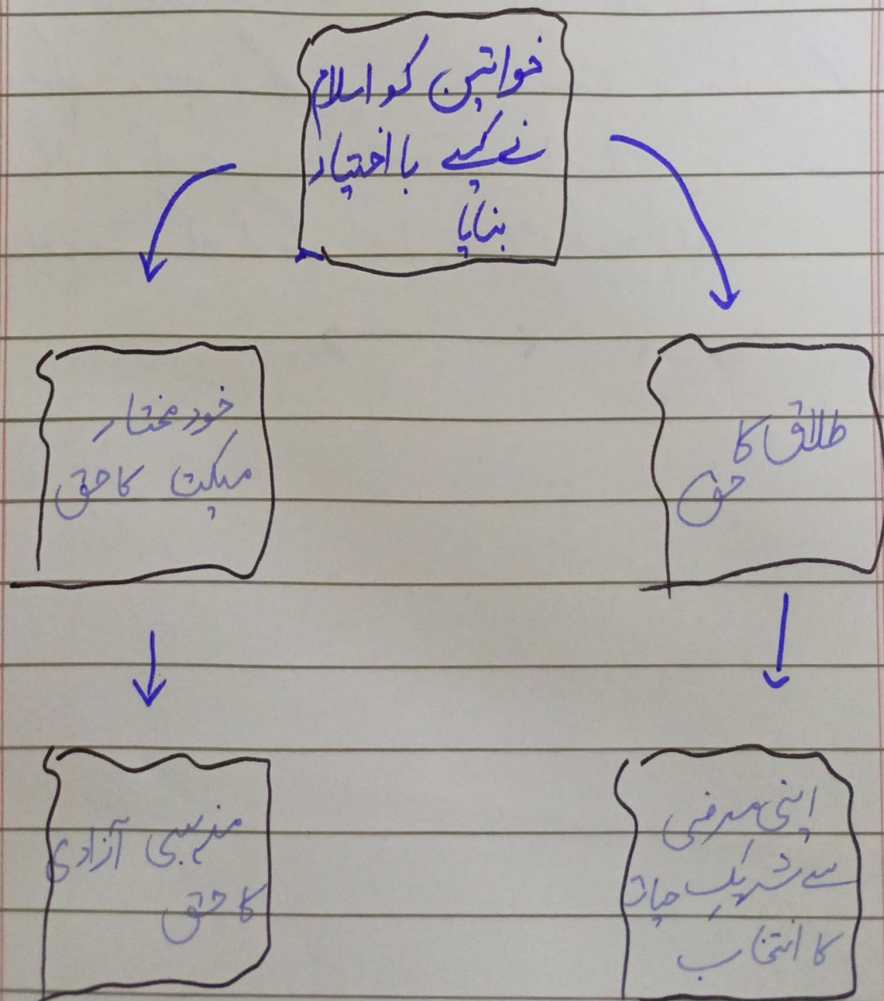 خواتین کو اسلام
نے کیسے با اختیار
بنایا
طلاق کا
حق
خود مختار
ملکیت کا حق
اپنی مرضی
سے شریک حیات
کا انتخاب
مذہبی آزادی
کا حق